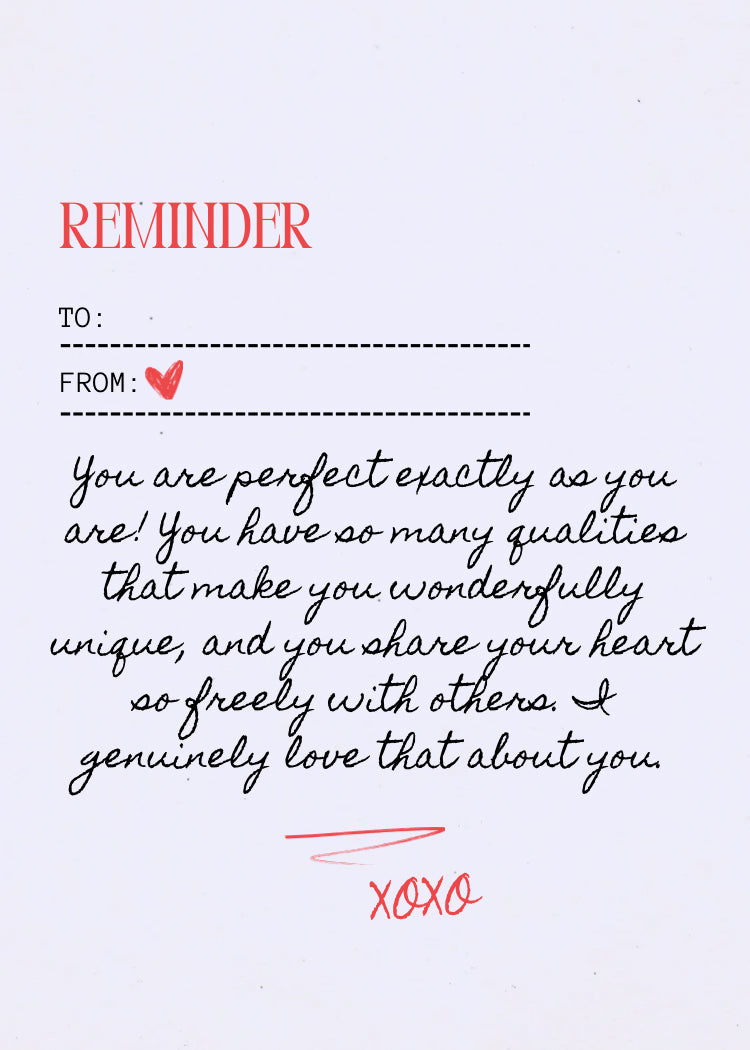 REMINDER
TO:
FROM:
You are perfect exactly as you
are! You have so many qualities
that make you wonderfully
unique, and you share your heart
so freely with others. I
genuinely love that about you.
XOXO